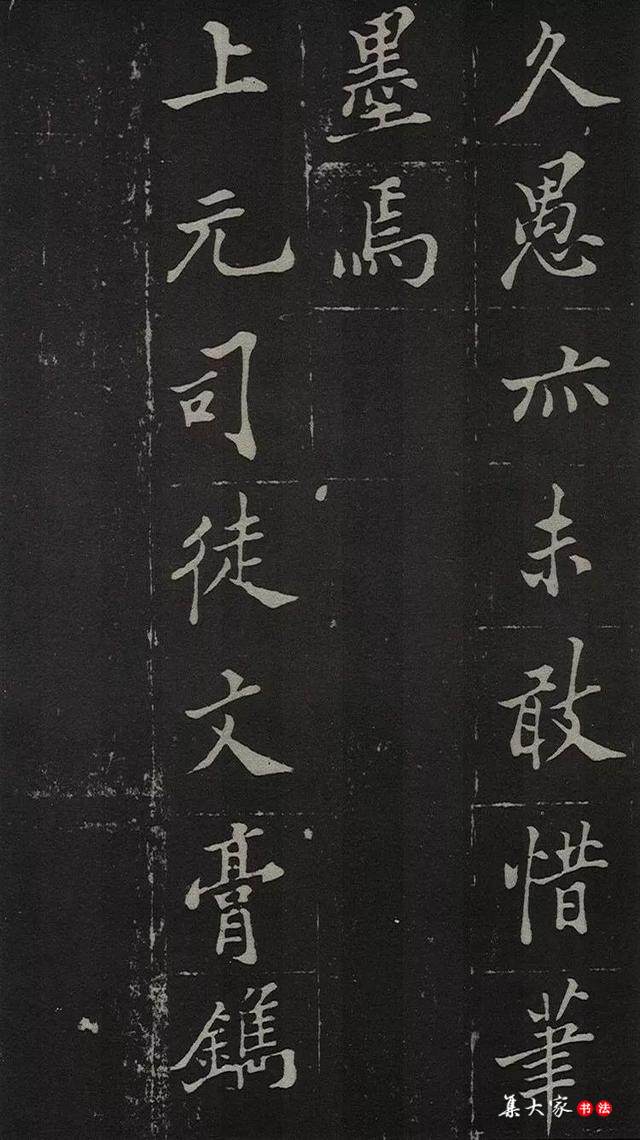 久愚亦未敢惜筆
墨焉
上元司徒文膏鐫
集大家書法